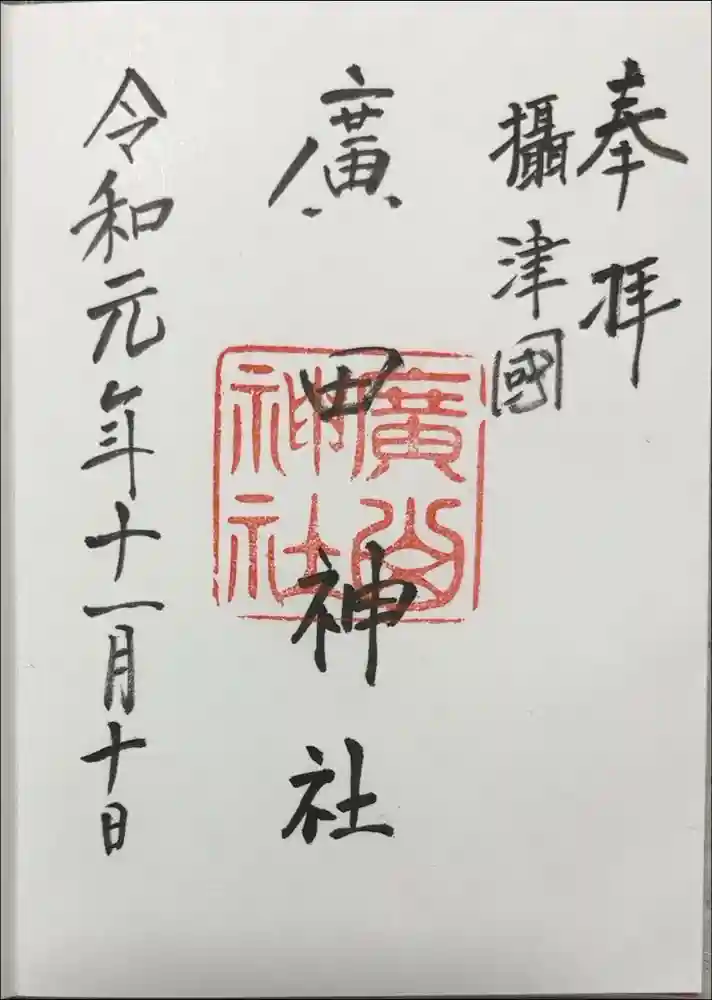 奉拝
攝津國
廣田神社
令和元年十一月十日